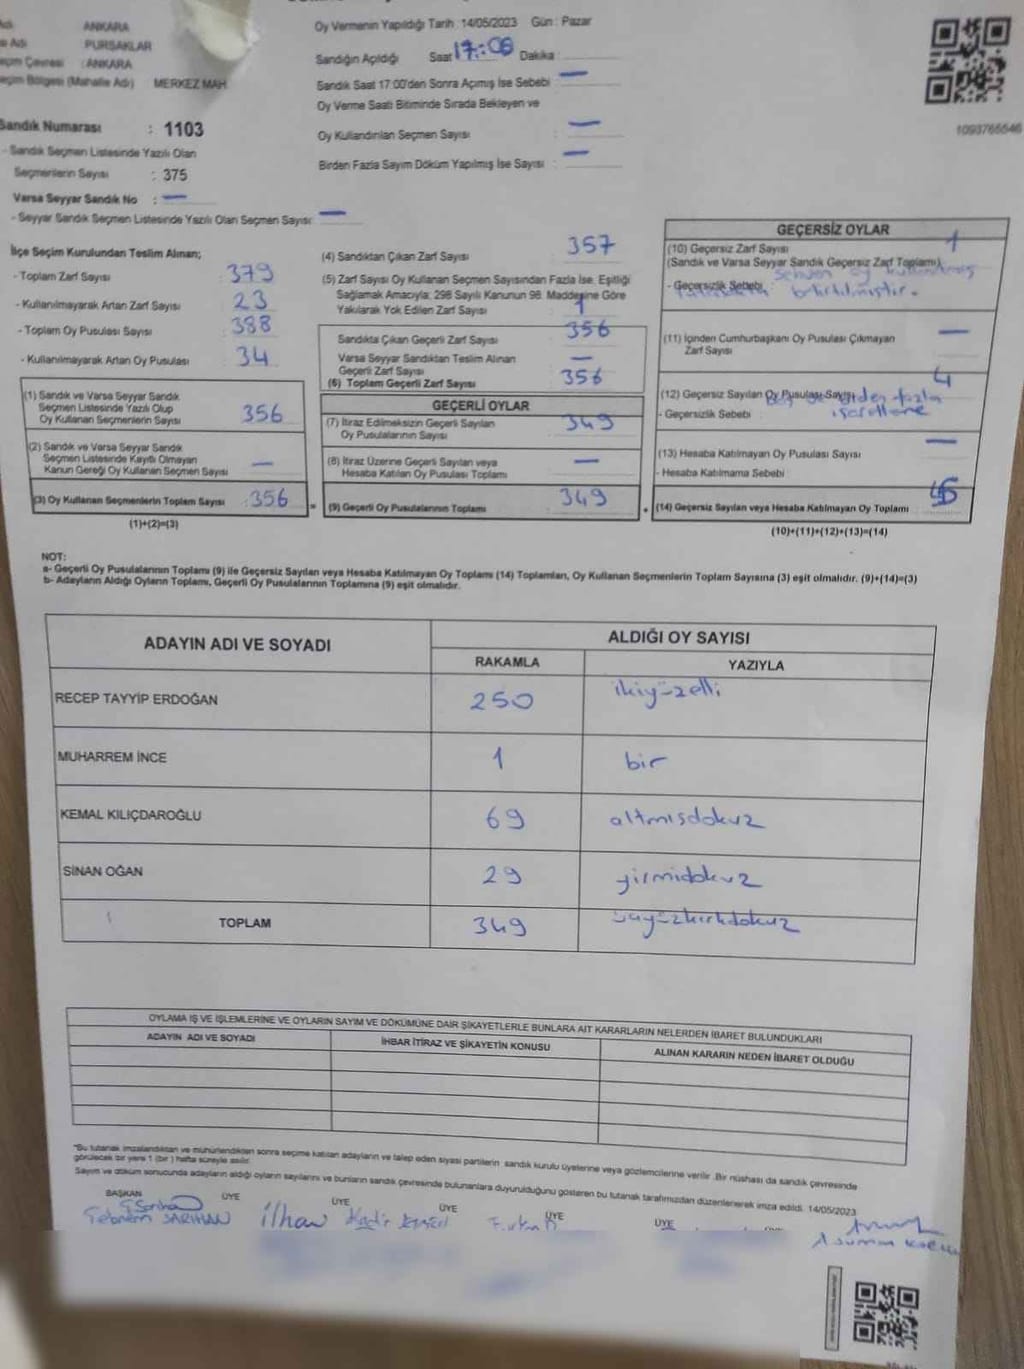 ANKARA
PURSAKLAR
: ANKARA
eçim Bölgesi (Mahalle Adı) MERKEZ MAH.
Sandık Numarası : 1103
- Sandık Seçmen Listesinde Yazılı Olan
Seçmenlerin Sayısı : 375
Varsa Seyyar Sandık No : —
- Seyyar Sandık Seçmen Listesinde Yazılı Olan Seçmen Sayısı: —
Oy Vermenin Yapıldığı Tarih : 14/05/2023 Gün : Pazar
Sandığın Açıldığı Saat 17:06 Dakika :
Sandık Saat 17:00'den Sonra Açılmış İse Sebebi : —
Oy Verme Saati Bitiminde Sırada Bekleyen ve
Oy Kullandırılan Seçmen Sayısı : —
Birden Fazla Sayım Döküm Yapılmış İse Sayısı : —
1093765546
İlçe Seçim Kurulundan Teslim Alınan;
- Toplam Zarf Sayısı : 379
- Kullanılmayarak Artan Zarf Sayısı : 23
- Toplam Oy Pusulası Sayısı : 388
- Kullanılmayarak Artan Oy Pusulası : 34
(1) Sandık ve Varsa Seyyar Sandık
Seçmen Listesinde Yazılı Olup
Oy Kullanan Seçmenlerin Sayısı : 356
(2) Sandık ve Varsa Seyyar Sandık
Seçmen Listesinde Kayıtlı Olmayan
Kanun Gereği Oy Kullanan Seçmen Sayısı : —
(3) Oy Kullanan Seçmenlerin Toplam Sayısı : 356
(1)+(2)=(3)
(4) Sandıktan Çıkan Zarf Sayısı : 357
(5) Zarf Sayısı Oy Kullanan Seçmen Sayısından Fazla İse, Eşitliği
Sağlamak Amacıyla; 298 Sayılı Kanunun 98. Maddesine Göre
Yakılarak Yok Edilen Zarf Sayısı : 1
Sandıkta Çıkan Geçerli Zarf Sayısı : 356
Varsa Seyyar Sandıktan Teslim Alınan
Geçerli Zarf Sayısı : —
(6) Toplam Geçerli Zarf Sayısı : 356
GEÇERLİ OYLAR
(7) İtiraz Edilmeksizin Geçerli Sayılan
Oy Pusulalarının Sayısı : 349
(8) İtiraz Üzerine Geçerli Sayılan veya
Hesaba Katılan Oy Pusulası Toplamı : —
= (9) Geçerli Oy Pusulalarının Toplamı : 349
GEÇERSİZ OYLAR
(10) Geçersiz Zarf Sayısı 1
(Sandık ve Varsa Seyyar Sandık Geçersiz Zarf Toplamı)
sehven oy kullanılmış
- Geçersizlik Sebebi :
tutanakta belirtilmiştir.
(11) İçinden Cumhurbaşkanı Oy Pusulası Çıkmayan —
Zarf Sayısı
(12) Geçersiz Sayılan Oy Pusulası Sayısı : 4
birden fazla
- Geçersizlik Sebebi :
işaretleme
(13) Hesaba Katılmayan Oy Pusulası Sayısı : —
- Hesaba Katılmama Sebebi :
+ (14) Geçersiz Sayılan veya Hesaba Katılmayan Oy Toplamı :
(10)+(11)+(12)+(13)=(14)
NOT:
a- Geçerli Oy Pusulalarının Toplamı (9) ile Geçersiz Sayılan veya Hesaba Katılmayan Oy Toplamı (14) Toplamları, Oy Kullanan Seçmenlerin Toplam Sayısına (3) eşit olmalıdır. (9)+(14)=(3)
b- Adayların Aldığı Oyların Toplamı, Geçerli Oy Pusulalarının Toplamına (9) eşit olmalıdır.
ADAYIN ADI VE SOYADI ALDIĞI OY SAYISI
RAKAMLA YAZIYLA
RECEP TAYYİP ERDOĞAN 250 ikiyüzelli
MUHARREM İNCE 1 bir
KEMAL KILIÇDAROĞLU 69 altmışdokuz
SİNAN OĞAN 29 yirmidokuz
TOPLAM 349 üçyüzkırkdokuz
OYLAMA İŞ VE İŞLEMLERİNE VE OYLARIN SAYIM VE DÖKÜMÜNE DAİR ŞİKAYETLERLE BUNLARA AİT KARARLARIN NELERDEN İBARET BULUNDUKLARI
ADAYIN ADI VE SOYADI İHBAR İTİRAZ VE ŞİKAYETİN KONUSU ALINAN KARARIN NEDEN İBARET OLDUĞU
*Bu tutanak imzalandıktan ve mühürlendikten sonra seçime katılan adayların ve talep eden siyasi partilerin sandık kurulu üyelerine veya gözlemcilerine verilir. Bir nüshası da sandık çevresinde
görülecek bir yere 1 (bir) hafta süreyle asılır.
Sayım ve döküm sonucunda adayların aldığı oyların sayılarını ve bunların sandık çevresinde bulunanlara duyurulduğunu gösteren bu tutanak tarafımızdan düzenlenerek imza edildi. 14/05/2023
BAŞKAN ÜYE ÜYE ÜYE ÜYE ÜYE
Şebnem SARIHAN İlhan Kadir Furkan